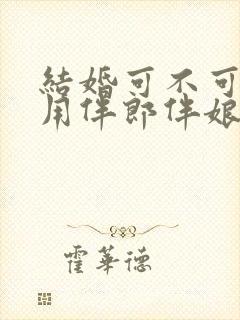 結婚可不可
用伴郎伴娘
霍華德